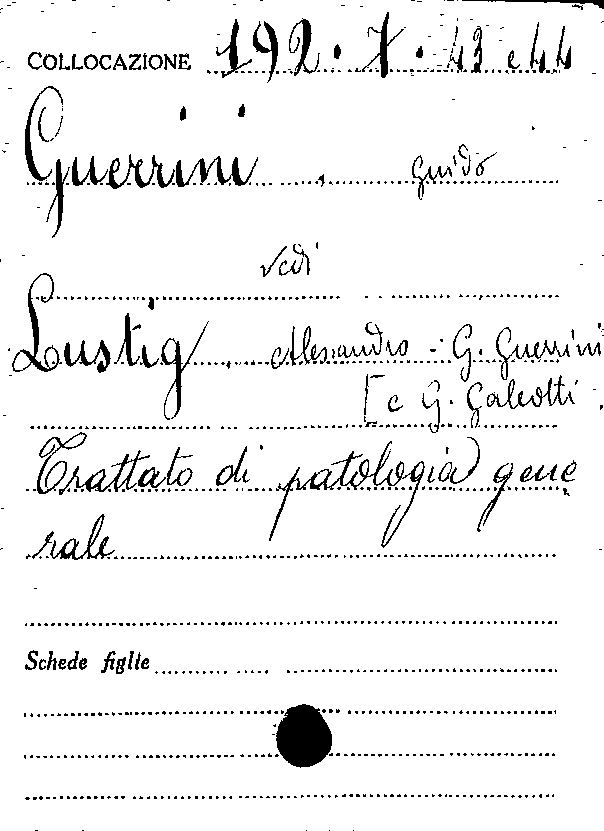 COLLOCAZIONE 192 . 7 . 43 e 44
Guerrini . Guido
Vedi
Lustig . Alessandro - G. Guerrini
[e G. Galeotti .
Trattato di patologia gene
rale
Schede figlie